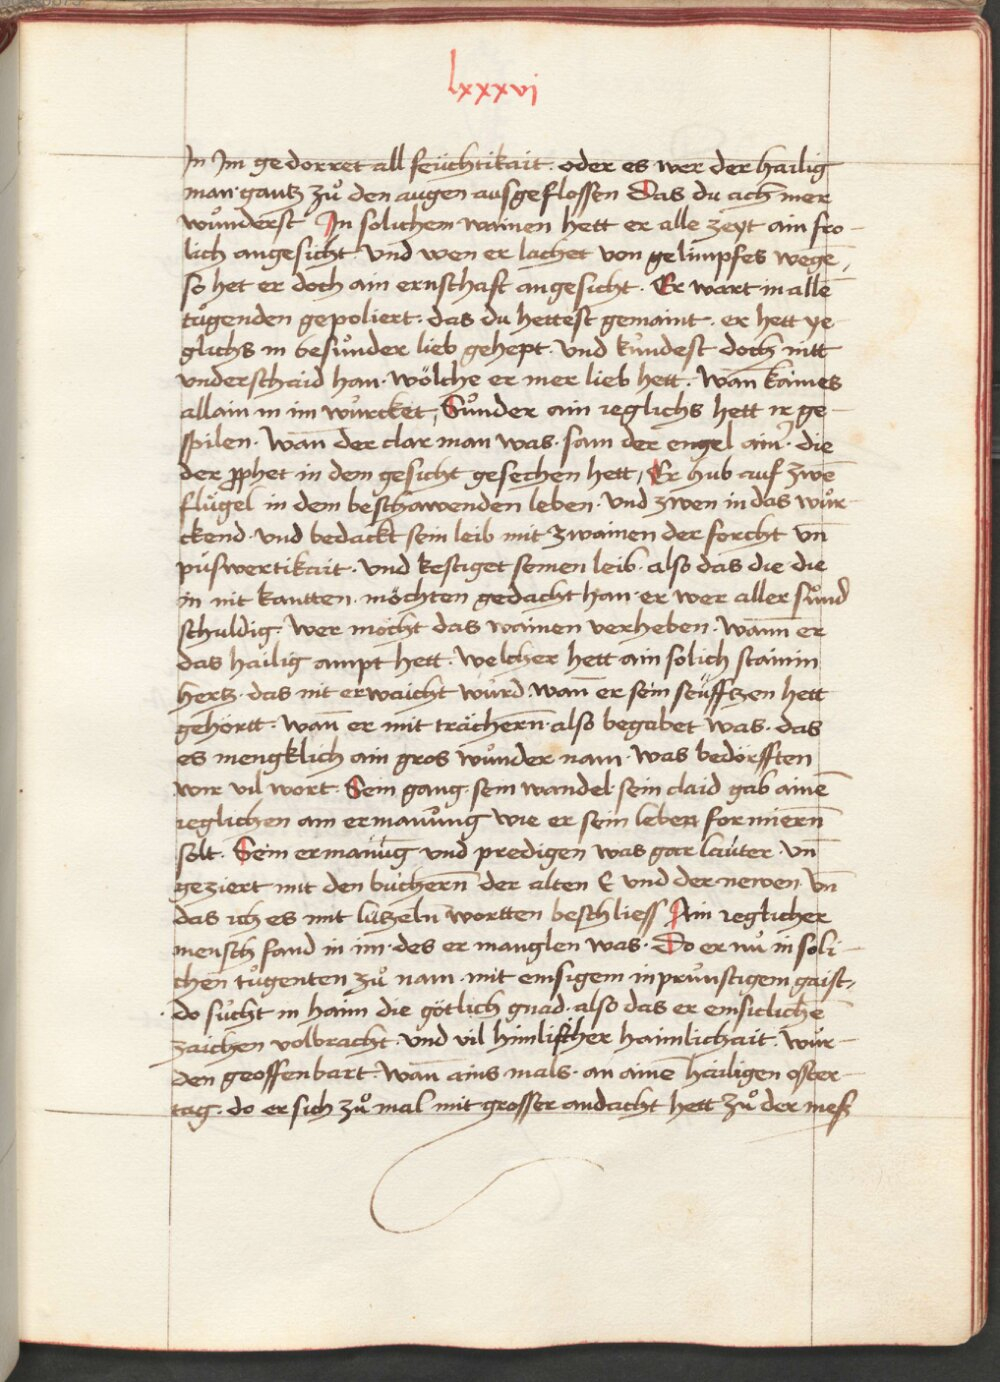 lxxxvi
In Im gedorret all feüchtikait · oder es wer der hailig
man · gantz zů den augen ausgeflossen Das du ach mer
wůnderst In solichem wainen hett er alle zeyt ain fro-
lich angesicht · Vnd wen er lachet von gelimpfes wegē,
so het er doch ain ernschaft angesicht · Er wart in allē
tůgenden gepoliert: das du hettest gemaint · er hett ye-
glichs in besůnder lieb gehept · Vnd kůndest doch nitt
vnderschaid han · Wölche er mer lieb hett · Wan kaines
allain in im wůrcket, Sůnder ain ieglichs hett ir ge-
spilen · Wan̄ der clar man was · sam der engel ain' · die
der ꝓphet in dem gesicht gesechen hett, Er hub auf zwē
flügel in dem beschawenden leben · Vnd zwen in das wůr-
ckend · Vnd bedackt sein leib mit zwainen der forcht vn̄
půswertikait · Vnd kestiget seinen leib · also das die die
in nit kantten · möchten gedacht han · er wer aller sůnd
schuldig · Wer möcht das wainen verheben · Wann̄ er
das hailig ampt hett · Welcher hett ain solich stainin
hertz · das nit erwaicht würd · wan̄ er sein seüfftzen hett
gehörtt · Wan̄ er mit trächern̄ · also begabet was · das
es mengklich ain gros wůnder nam · Was bedörfften
wir vil wort · Sein gang · sein wandel · sein claid gab ainē
ieglichen ain ermanūng wie er sein leben formiern̄
solt · Sein ermanūg vnd predigen was gar lauter · vn̄
geziert mit den büchern̄ der alten E vnd der newen vn̄
das ich es mit lützeln̄ wortten beschliess Ain ieglicher
mensch fand in im · des er manglen was · Do er nů in soli-
chen tůgenten zů nam · mit emsigem inprůnstigem gaist,
do sůcht in haim die götlich gnad · also das er ensicliche
zaichen volbracht · Vnd vil himlischer haimlichait · Wur-
den geoffenbart · Wan̄ ains mals · an ainē hailigen oster-
tag · do er sich zů mal mit grosser andacht hett zů der meß